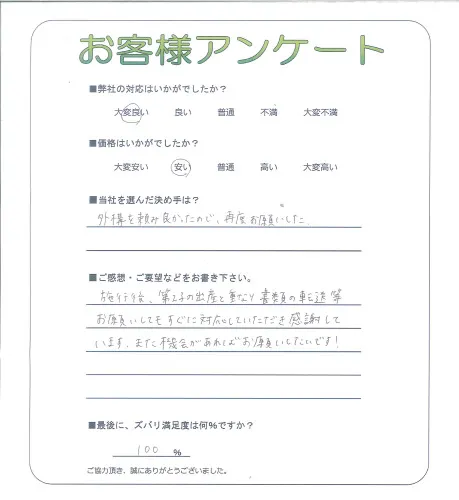 お客様アンケート
■弊社の対応はいかがでしたか？
大変良い 良い 普通 不満 大変不満
■価格はいかがでしたか？
大変安い 安い 普通 高い 大変高い
■当社を選んだ決め手は？
外構を頼み良かったので、再度お願いした。
■ご感想・ご要望などをお書き下さい。
施行後、第2子の出産と重なり書類の転送等
お願いしてもすぐに対応していただき感謝して
います。また機会があればお願いしたいです！
■最後に、ズバリ満足度は何％ですか？
100 %
ご協力頂き、誠にありがとうございました。